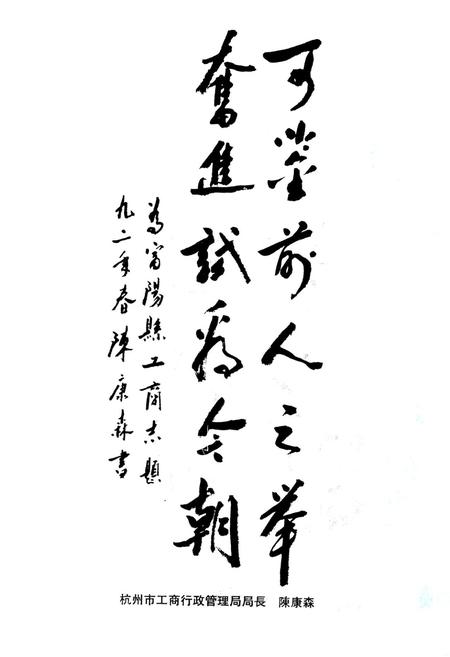 可鉴前人之举
奮進試看今朝
为富陽縣工商志題
九二年春陳康森書
杭州市工商行政管理局局長 陳康森